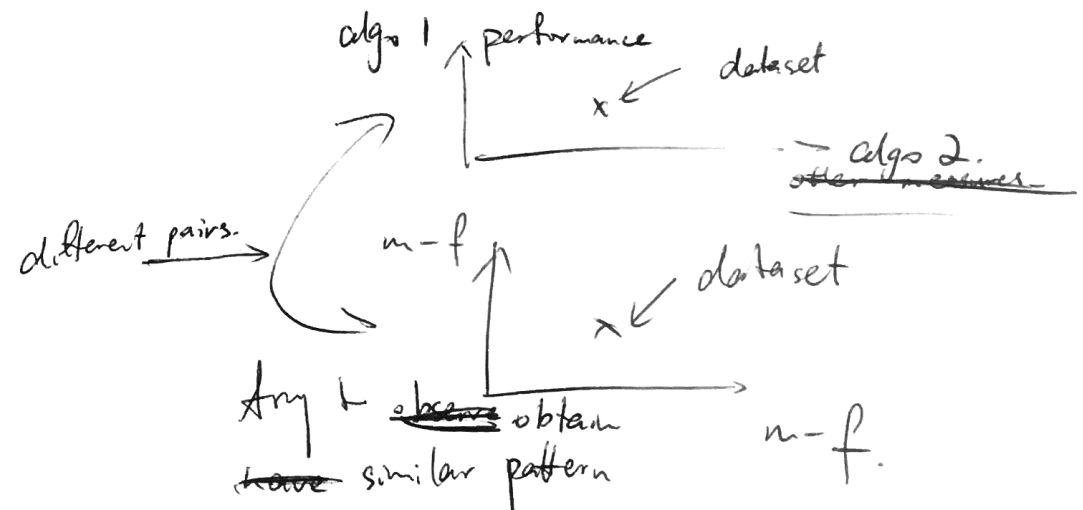 algo 1 performance
dataset
algo 2.
other measures
different pairs.
m-f
dataset
Try t observe obtain
have similar pattern
m-f.